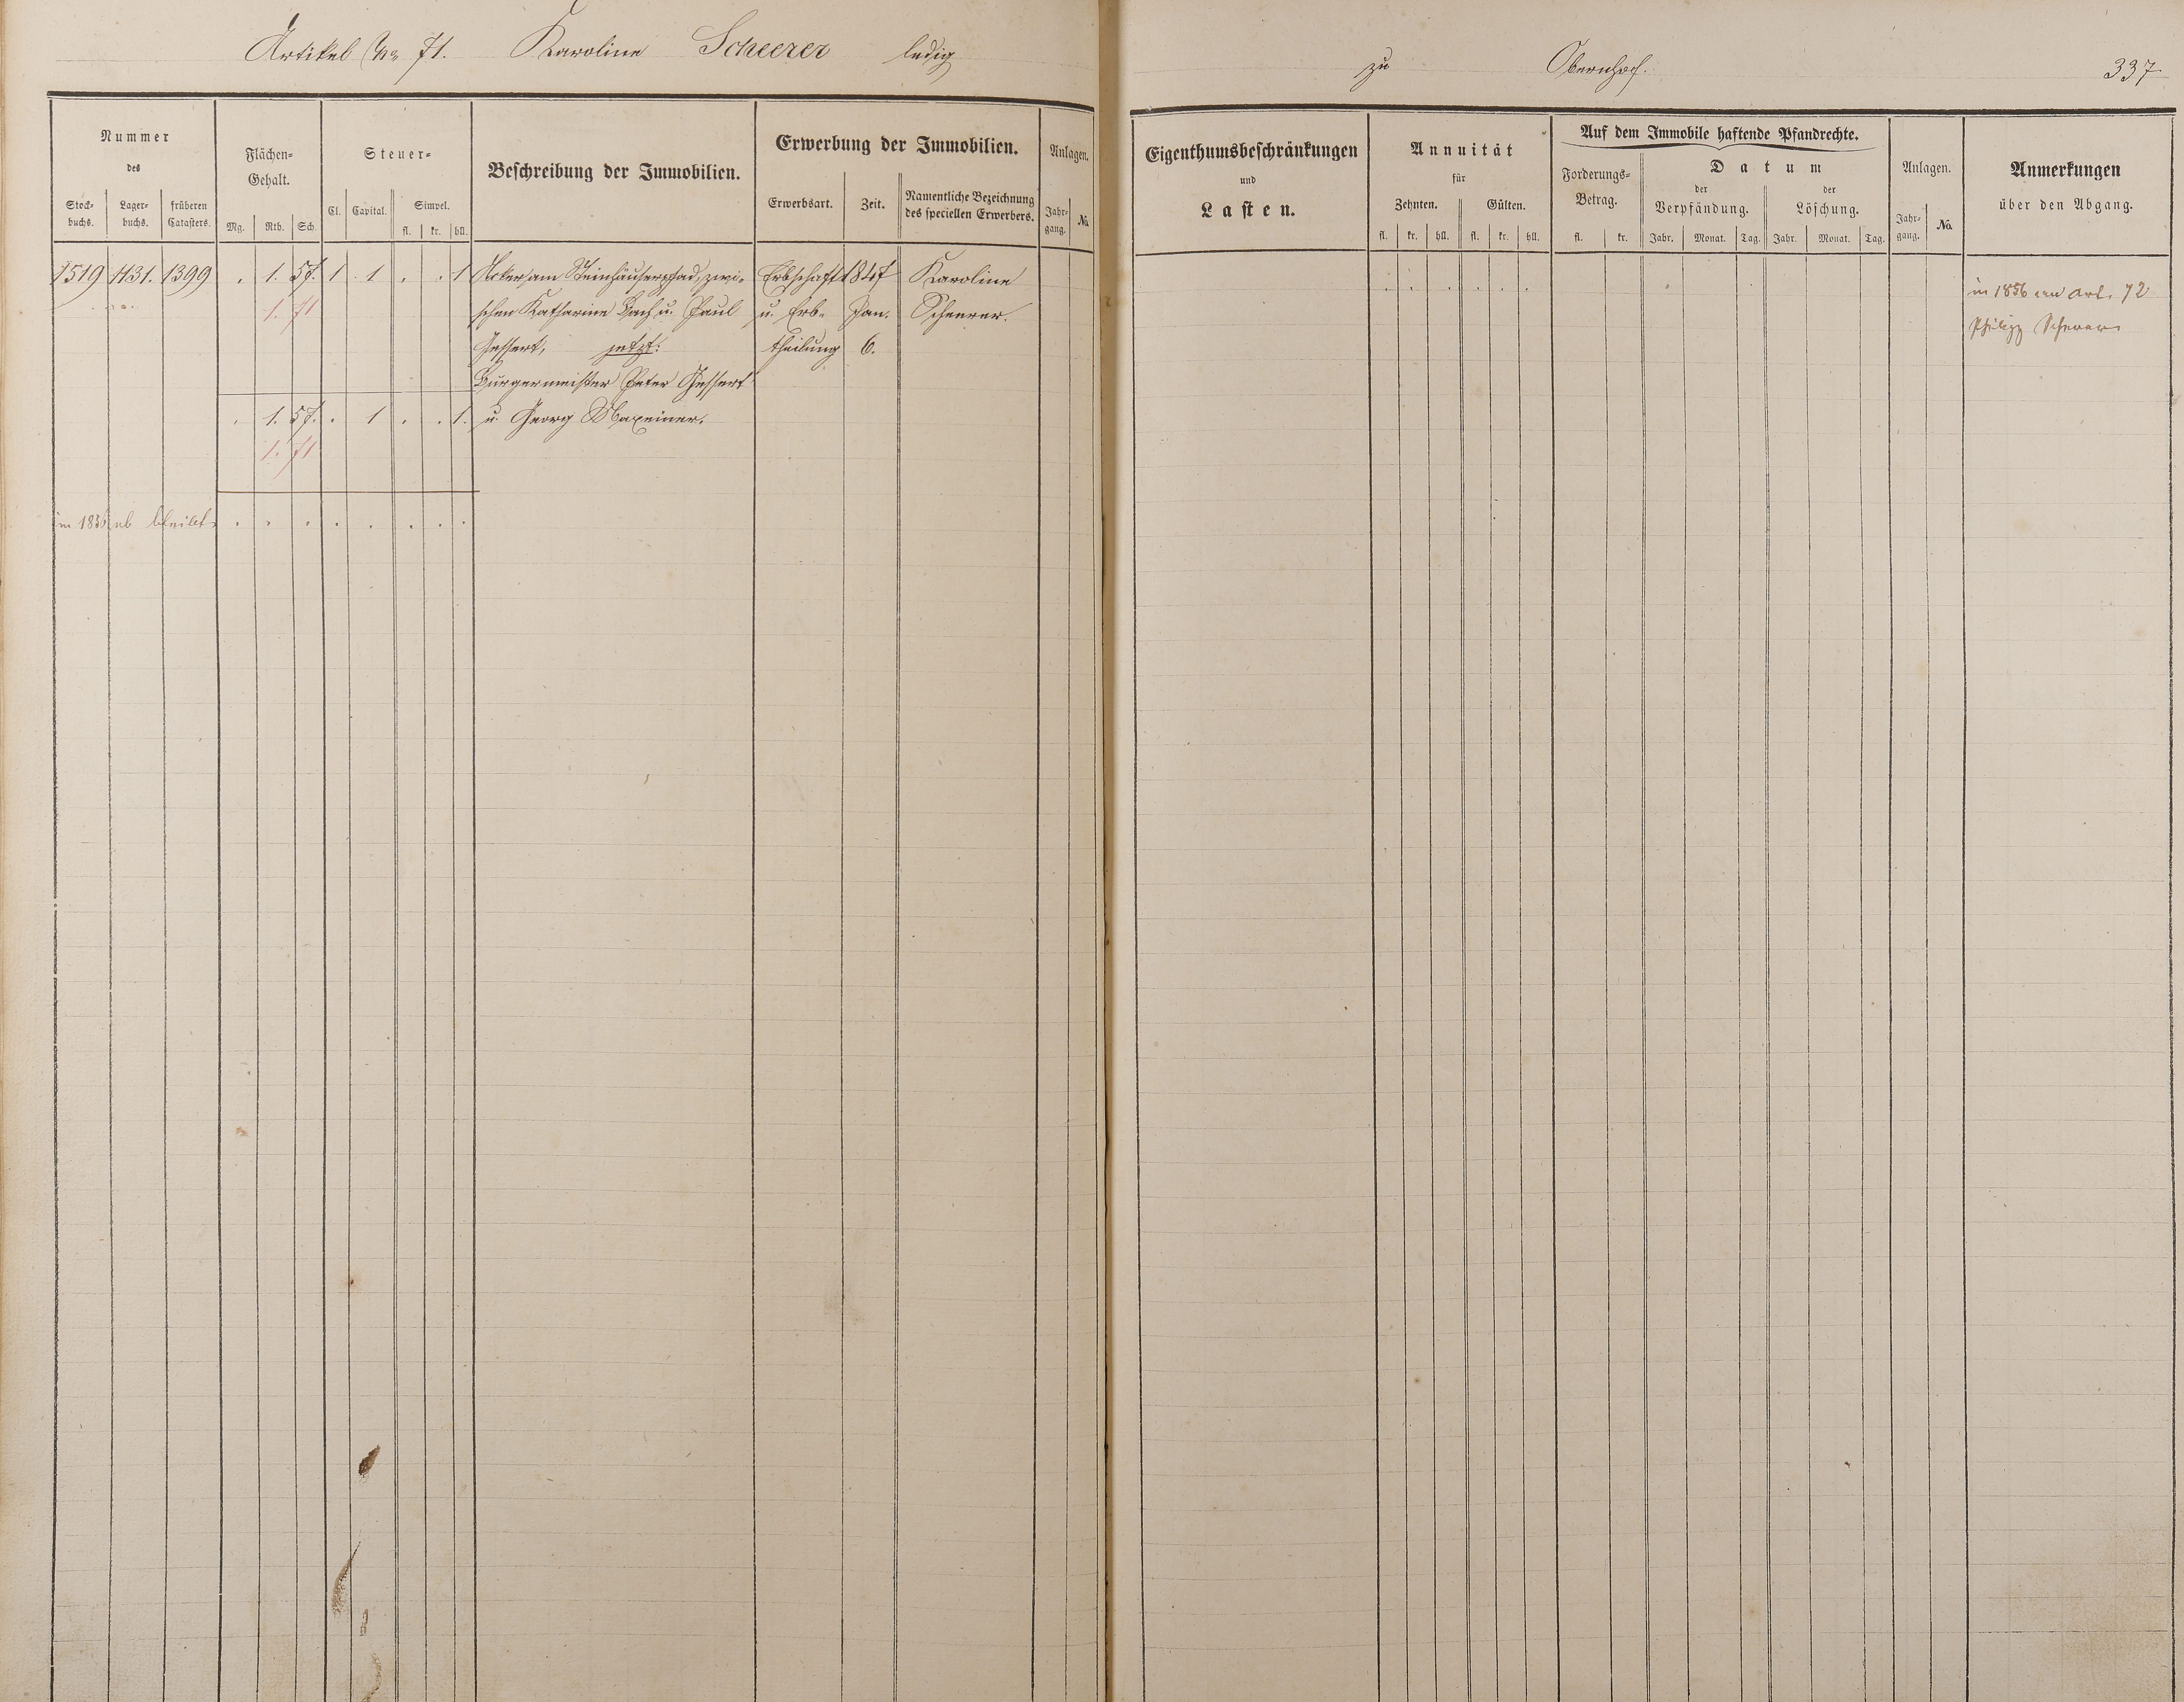 Artikel No 71. Karoline Scheerer ledig
zu Obernhof. 337
Nummer
des
Stock-
buchs.
Lager-
buchs.
früheren
Catasters.
Flächen-
Gehalt.
Mg. Rth. Sch.
Steuer-
Cl. Capital. Simpel.
fl. kr. hll.
Beschreibung der Immobilien.
Erwerbung der Immobilien.
Erwerbsart. Zeit.
Namentliche Bezeichnung
des speciellen Erwerbers.
Anlagen.
Jahr-
gang.
No.
Eigenthumsbeschränkungen
und
Lasten.
Annuität
für
Zehnten. Gülten.
fl. kr. hll. fl. kr. hll.
Auf dem Immobile haftende Pfandrechte.
Forderungs-
Betrag.
fl. kr.
Datum
der
Verpfändung.
der
Löschung.
Jahr. Monat. Tag. Jahr. Monat. Tag.
Anlagen.
Jahr-
gang.
No.
Anmerkungen
über den Abgang.
1519 1131. 1399 . 1. 57. 1 1 . . 1 Acker am Steinhäuserpfad, zwi- Erbschaft 1847 Karoline
1. 71 schen Katharine Bach u. Paul u. Erb- Jan. Scheerer.
Gessert, jetzt: theilung 6.
Bürgermeister Peter Gessert
. 1. 57. . 1 . . 1. u. Georg Maxeiner.
1. 71
in 1856 ab bleibt . . . . . . . .
in 1856 an Art. 72
Philipp Scheerer